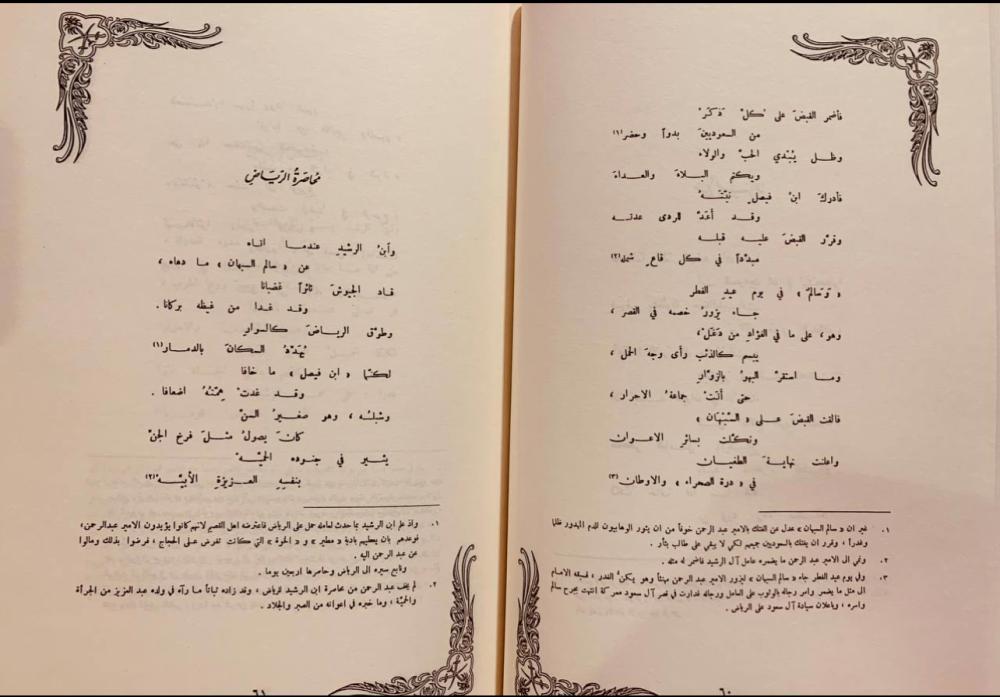 فأضمر القبضَ على كُلِّ ذَكَرْ
من السعوديينَ بدواً وحضر(١)
وظل يُبْدي الحبَّ والولاء
ويكتم البلاءَ والعداءَ
فأدركَ ابنُ فيصلٍ نيّتَهُ
وقد أعَدَّ للردى عدته
وقرّرَ القبضَ عليه قبله
مبدّداً في كل قاعٍ شمله(٢)
« وَسَالمٌ » في يوم عيدِ الفطرِ
جاء يزورُ خصمه في القصرِ ،
وهو ، على ما في الفؤادِ من دَغَلْ ،
يبسم كالذئب رأى وجهَ الحمل ،
وما استقرَّ البهوُ بالزوّارِ
حتى أتَتْ جماعةُ الاحرار ،
فالقت القبضَ على « السَّبْهَان »
ونكّلت بسائرِ الاعوان
واعلنت نهايةَ الطغيان
في « درة الصحراء » والاوطان(٣)
١. غير ان « سالم السبهان » عدل عن الفتك بالامير عبد الرحمن خوفاً من ان يثور الوهابيون للدم المهدور ظلما وغدراً ، وقرر ان يفتك بالسعوديين جميعهم لكي لا يبقي على طالب بثأر .
٢. ونمي الى الامير عبد الرحمن ما يضمره عامل آل الرشيد فاضمر له مثله .
٣. وفي يوم عيد الفطر جاء « سالم السبهان » ليزور الامير عبد الرحمن مهنئاً وهو يكنُّ الغدر ، فسبقه الامام الى مثل ما يضمر وامر رجاله بالوثوب على العامل ورجاله فدارت في قصر آل سعود معركة انتهت بجرح سالم واسره ، وباعلان سيادة آل سعود على الرياض .
٦٠
محاصَرةُ الرّيَاضِ
وابنُ الرشيدِ عندما اتاه
عن « سالم السبهان » ما دهاه ،
قاد الجيوشَ ثائراً غضبانا
وقد غدا من غيظه بركانا .
وطوّق الرياضَ كالسوارِ
يُهدّدُ المكانَ بالدمار(١)
لكنّما « ابن فيصل » ما خافا
وقد غدتْ همّتُهُ اضعافا .
وشبلُه ، وهو صغيرُ السنْ
كانَ يصولُ مثلَ فرخِ الجنْ
يثير في جنوده الحميّهْ
بنفسهِ العزيزةِ الأبيّهْ(٢)
١. واذ علم ابن الرشيد بما حدث لعامله حمل على الرياض فاعترضه اهل القصيم لانهم كانوا يؤيدون الامير عبدالرحمن ، فوعدهم بان يعطيهم بادية « مطير » و « الخوة » التي كانت تفرض على الحجاج ، فرضوا بذلك ومالوا عن عبد الرحمن اليه .
وتابع سيره الى الرياض وحاصرها اربعين يوما .
٢. لم يخف عبد الرحمن من محاصرة ابن الرشيد للرياض ، وقد زاده ثباتاً ما رآه في ولده عبد العزيز من الجرأة والحميّة ، وما خبره في اعوانه من الصبر والجلاد .
٦١